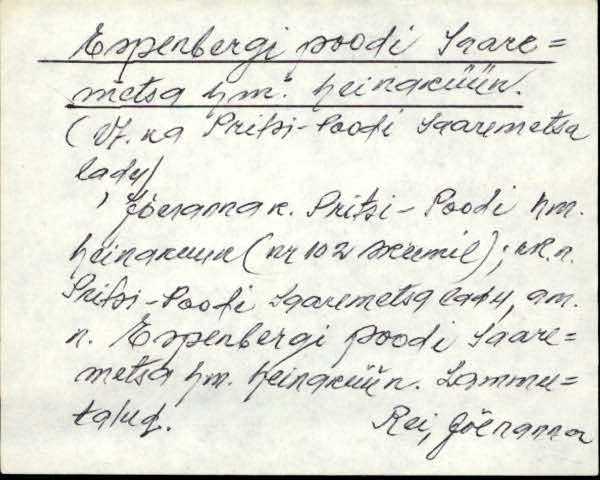 Espenbergi poodi Saare=
metsa hm. heinaküün.
(Vt. ka Pritsi-Poodi Saaremetsa
lady)
Jõeranna k. Pritsi-Poodi hm.
heinakuun (nr 102 skeemil); rk. n.
Pritsi-Poodi Saaremetsa lady, am.
n. Espenbergi poodi Saare=
metsa hm. heinaküün. Lammu=
talud.
Rei, Jõeranna